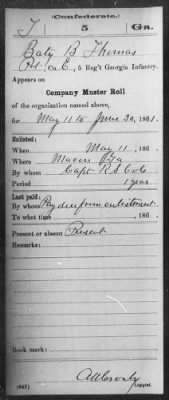 (Confederate.)
T 5 Ga.
Baty B Thomas
Co. E, 5 Reg't Georgia Infantry.
Appears on
Company Muster Roll
of the organization named above,
for May 11 to June 30, 1861.
Enlisted:
When May 11, 186 .
Where Macon Ga
By whom Capt R S Cols
Period 1 year
Last paid:
By whom Pay due from enlistment
To what time , 186 .
Present or absent Present
Remarks:
Book mark:
(642) Copyist.